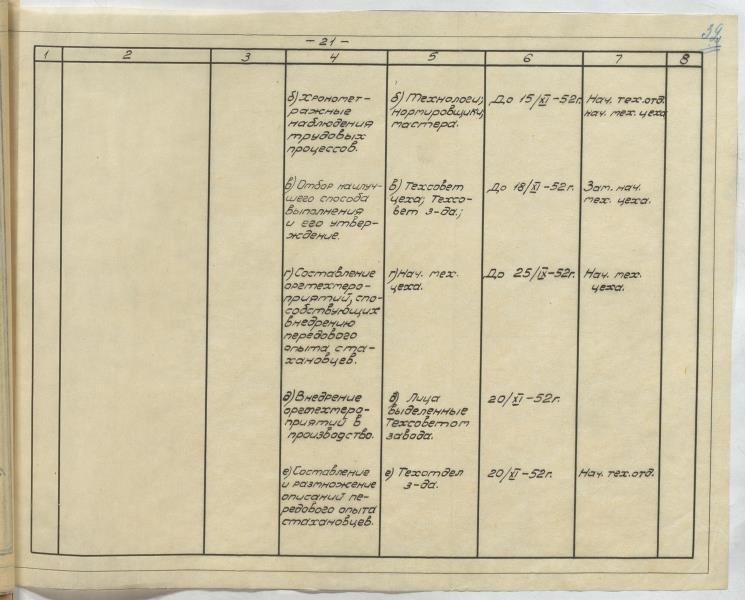 39
- 21 -
1 2 3 4 5 6 7 8
б) Хрономет-
ражные
наблюдения
трудовых
процессов.
б) Технологи;
нормировщики;
мастера.
До 15/XI-52г.
Нач. тех. отд.
нач. мех. цеха
в) Отбор наилуч-
шего способа
выполнения
и его утвер-
ждение.
в) Техсовет
цеха; Техсо-
вет з-да;
До 18/XI-52г.
Зам. нач.
мех. цеха.
г) Составление
оргтехмеро-
приятий, спо-
собствующих
внедрению
передового
опыта ста-
хановцев.
г) Нач. мех.
цеха.
До 25/IX-52г.
Нач. мех.
цеха.
д) Внедрение
оргтехмеро-
приятий в
производство.
д) Лица
выделенные
Техсоветом
завода.
20/XI-52г.
е) Составление
и размножение
описаний пе-
редового опыта
стахановцев.
е) Техотдел
з-да.
20/XI-52г.
Нач. тех. отд.